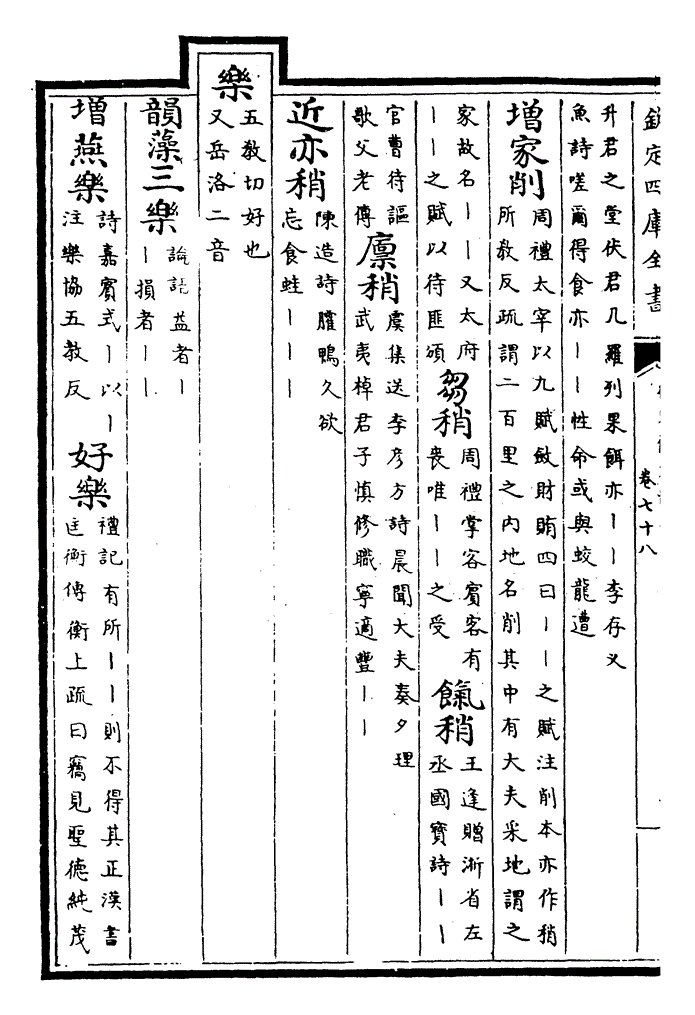 欽定四庫全書
卷七十八
升君之堂伏君几羅列果餌亦丨丨李存义
魚詩嗟爾得食亦丨丨性命或與蛟龍遭
增家削
周禮太宰以九賦斂財賄四曰丨丨之賦注削本亦作稍
所教反疏謂二百里之内地名削其中有大夫采地謂之
家故名丨丨又太府
丨丨之賦以待匪頒
芻稍
周禮掌客賓客有
喪唯丨丨之受
餼稍
王逢贈浙省左
丞國寶詩丨丨
官曹待謳
歌父老傳
廩稍
虞集送李彦方詩晨聞大夫奏夕理
武夷棹君子慎修職寧適豐丨丨
近亦稍
陳造詩臛鴨久欲
忘食蛙丨丨丨
樂
五教切好也
又岳洛二音
韻藻三樂
論語益者丨
丨損者丨丨
增燕樂
詩嘉賓式丨以丨
注樂協五教反
好樂
禮記有所丨丨則不得其正漢書
匡衡傳衡上疏曰竊見聖德純茂